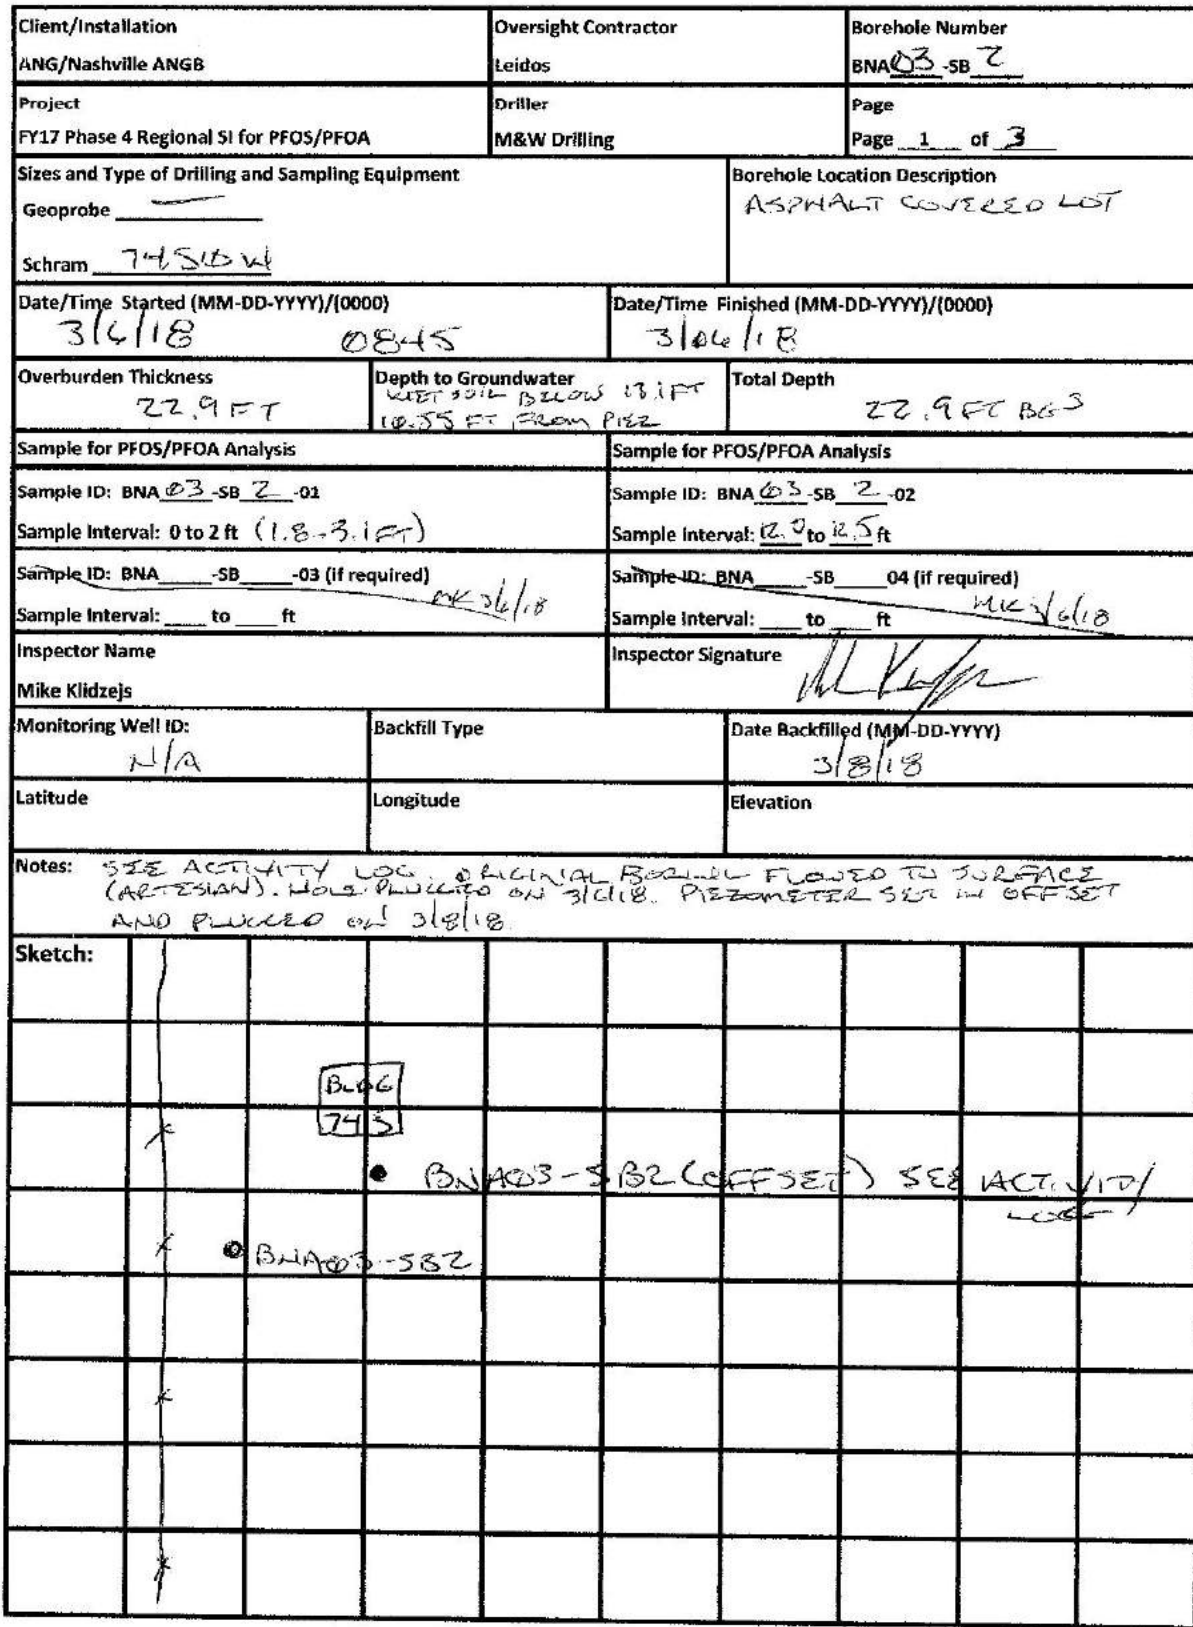 Client/Installation
ANG/Nashville ANGB
Oversight Contractor
Leidos
Borehole Number
BNA 03 -SB 2
Project
FY17 Phase 4 Regional SI for PFOS/PFOA
Driller
M&W Drilling
Page
Page 1 of 3
Sizes and Type of Drilling and Sampling Equipment
Geoprobe —
Schram
Borehole Location Description
ASPHALT COVERED LOT
Date/Time Started (MM-DD-YYYY)/(0000)
3/6/18 0845
Date/Time Finished (MM-DD-YYYY)/(0000)
3/06/18
Overburden Thickness
22.9 FT
Depth to Groundwater
WET SOIL BELOW 13.1 FT
10.55 FT FROM PIEZ
Total Depth
22.9 FT BGS
Sample for PFOS/PFOA Analysis
Sample ID: BNA 03 -SB 2 -01
Sample Interval: 0 to 2 ft (1.8-3.1 FT)
Sample for PFOS/PFOA Analysis
Sample ID: BNA 03 -SB 2 -02
Sample Interval: 12.0 to 12.5 ft
Sample ID: BNA____-SB____-03 (if required)
Sample Interval: ____ to ____ ft
MK 3/6/18
Sample ID: BNA____-SB____04 (if required)
Sample Interval: ____ to ____ ft
MK 3/6/18
Inspector Name
Mike Klidzejs
Inspector Signature
Monitoring Well ID:
N/A
Backfill Type
Date Backfilled (MM-DD-YYYY)
3/8/18
Latitude
Longitude
Elevation
Notes: SEE ACTIVITY LOG. ORIGINAL BORING FLOWED TO SURFACE
(ARTESIAN). HOLE PLUGGED ON 3/6/18. PIEZOMETER SET IN OFFSET
AND PLUGGED ON 3/8/18
Sketch:
BLDG
745
BNA03-SB2 (OFFSET) SEE ACTIVITY
LOG
BNA03-SB2